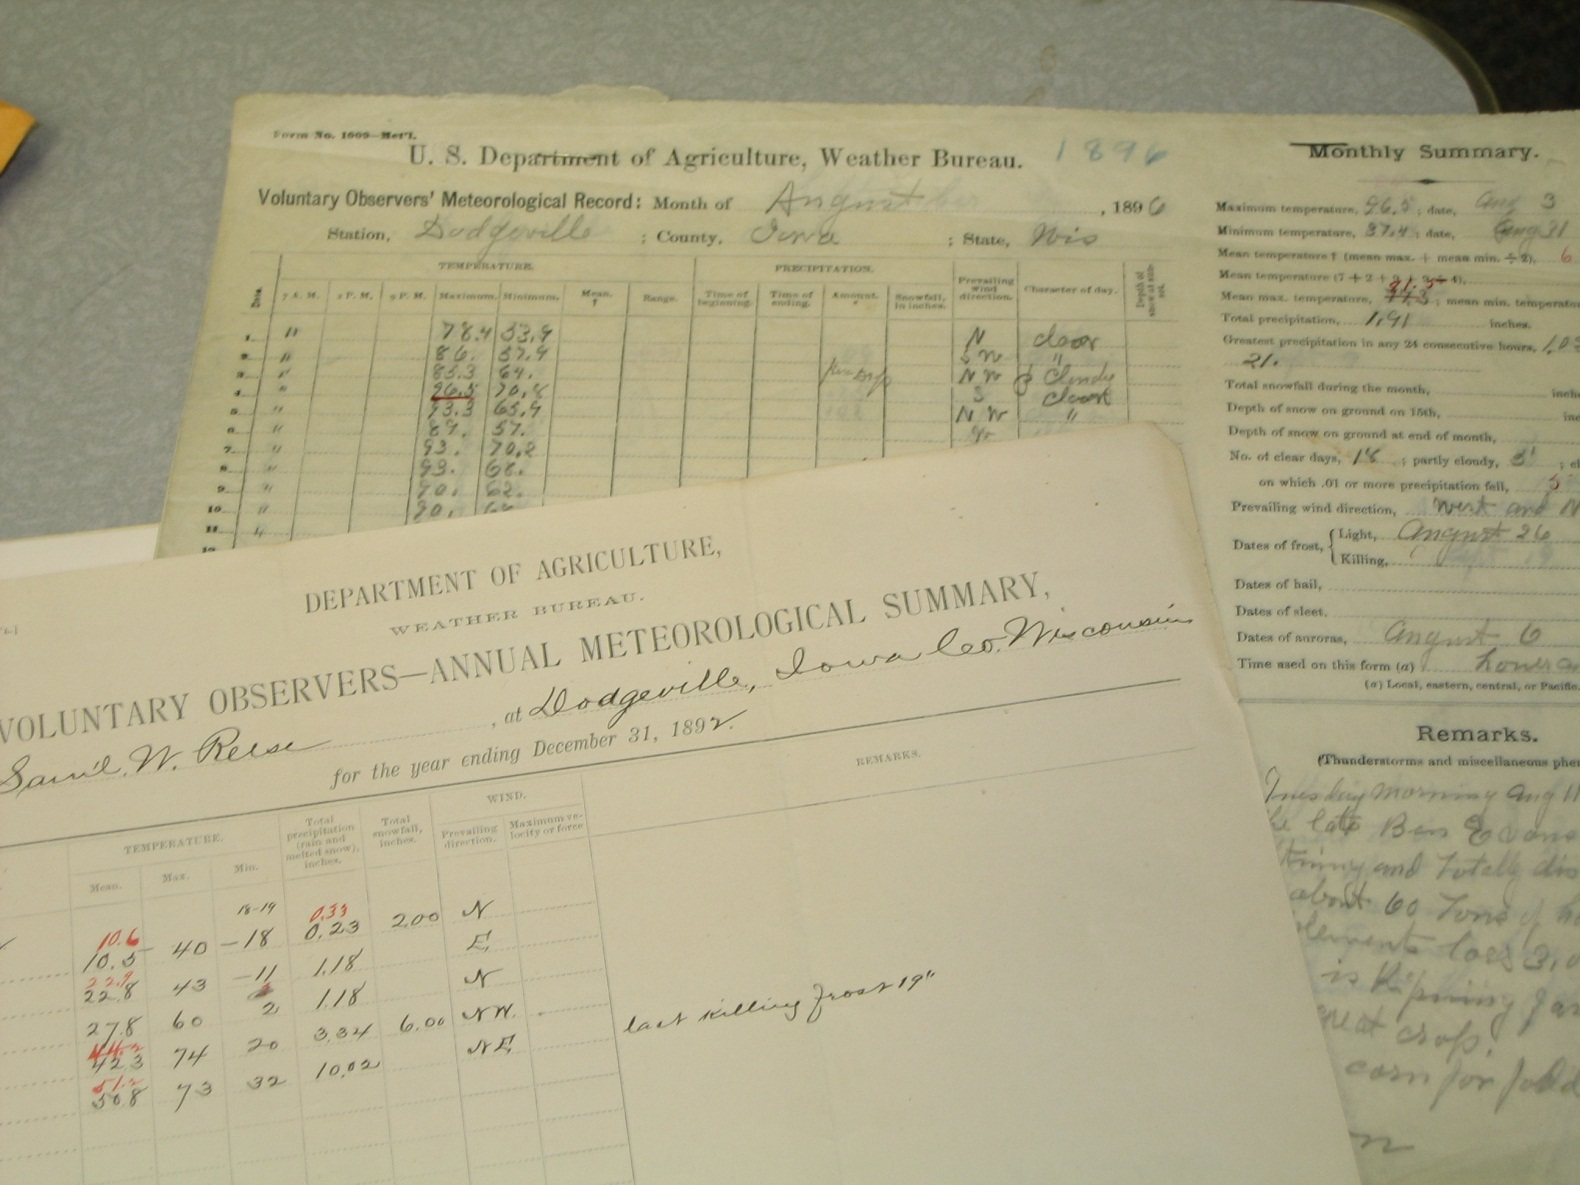 Form No. 1009—Met'l.
U. S. Department of Agriculture, Weather Bureau. 1896
Voluntary Observers' Meteorological Record: Month of August, 1896
Station, Dodgeville; County, Iowa; State, Wis
TEMPERATURE. PRECIPITATION.
Date. 7 A. M. 2 P. M. 9 P. M. Maximum. Minimum. Mean. † Range. Time of beginning. Time of ending. Amount. Snowfall, in inches. Prevailing wind direction. Character of day. Depth of snow at
1 " 78.4 53.9 N clear
2 " 86. 57.9 S W "
3 " 85.3 64. N W cloudy
4 " 96.5 70. S clear
5 " 93.3 65.9 N W "
6 " 89. 57.
7 " 93. 70.2
8 " 93. 68.
9 " 90. 62.
10 " 90.
11 "
12
Monthly Summary.
Maximum temperature, 96.5; date, Aug 3
Minimum temperature, 37.4; date, Aug 31
Mean temperature † (mean max. + mean min. ÷ 2), 6
Mean temperature (7 + 2 + 9 + 9 ÷ 4),
Mean max. temperature, ; mean min. temperatu
Total precipitation, 1.91 inches.
Greatest precipitation in any 24 consecutive hours, 1.0
21.
Total snowfall during the month, inch
Depth of snow on ground on 15th, in
Depth of snow on ground at end of month,
No. of clear days, 18; partly cloudy, 5; cl
on which .01 or more precipitation fell, 5
Prevailing wind direction, West and N
Dates of frost, { Light, August 26
Killing,
Dates of hail,
Dates of sleet.
Dates of auroras, August 6
Time used on this form (a)
(a) Local, eastern, central, or Pacific.
Remarks.
(Thunderstorms and miscellaneous phe
Tuesday morning Aug 11
he late Ben Evans
and Totally des
about 60 Tons of h
loss 3,0
is
crop.
corn for fodd
DEPARTMENT OF AGRICULTURE,
WEATHER BUREAU.
VOLUNTARY OBSERVERS—ANNUAL METEOROLOGICAL SUMMARY,
Sam'l. W. Reese, at Dodgeville, Iowa Co. Wisconsin
for the year ending December 31, 1892.
TEMPERATURE. Total precipitation (rain and melted snow), inches. Total snowfall, inches. WIND. REMARKS.
Mean. Max. Min. Prevailing direction. Maximum velocity or force
18-19 0.33
10.6
10.5 40 -18 0.23 2.00 N
22.9
22.8 43 -11 1.18 E
27.8 60 2 1.18 N
44.2
42.3 74 20 3.34 6.00 NW.
51.2
50.8 73 32 10.02 NE
last killing frost 19"